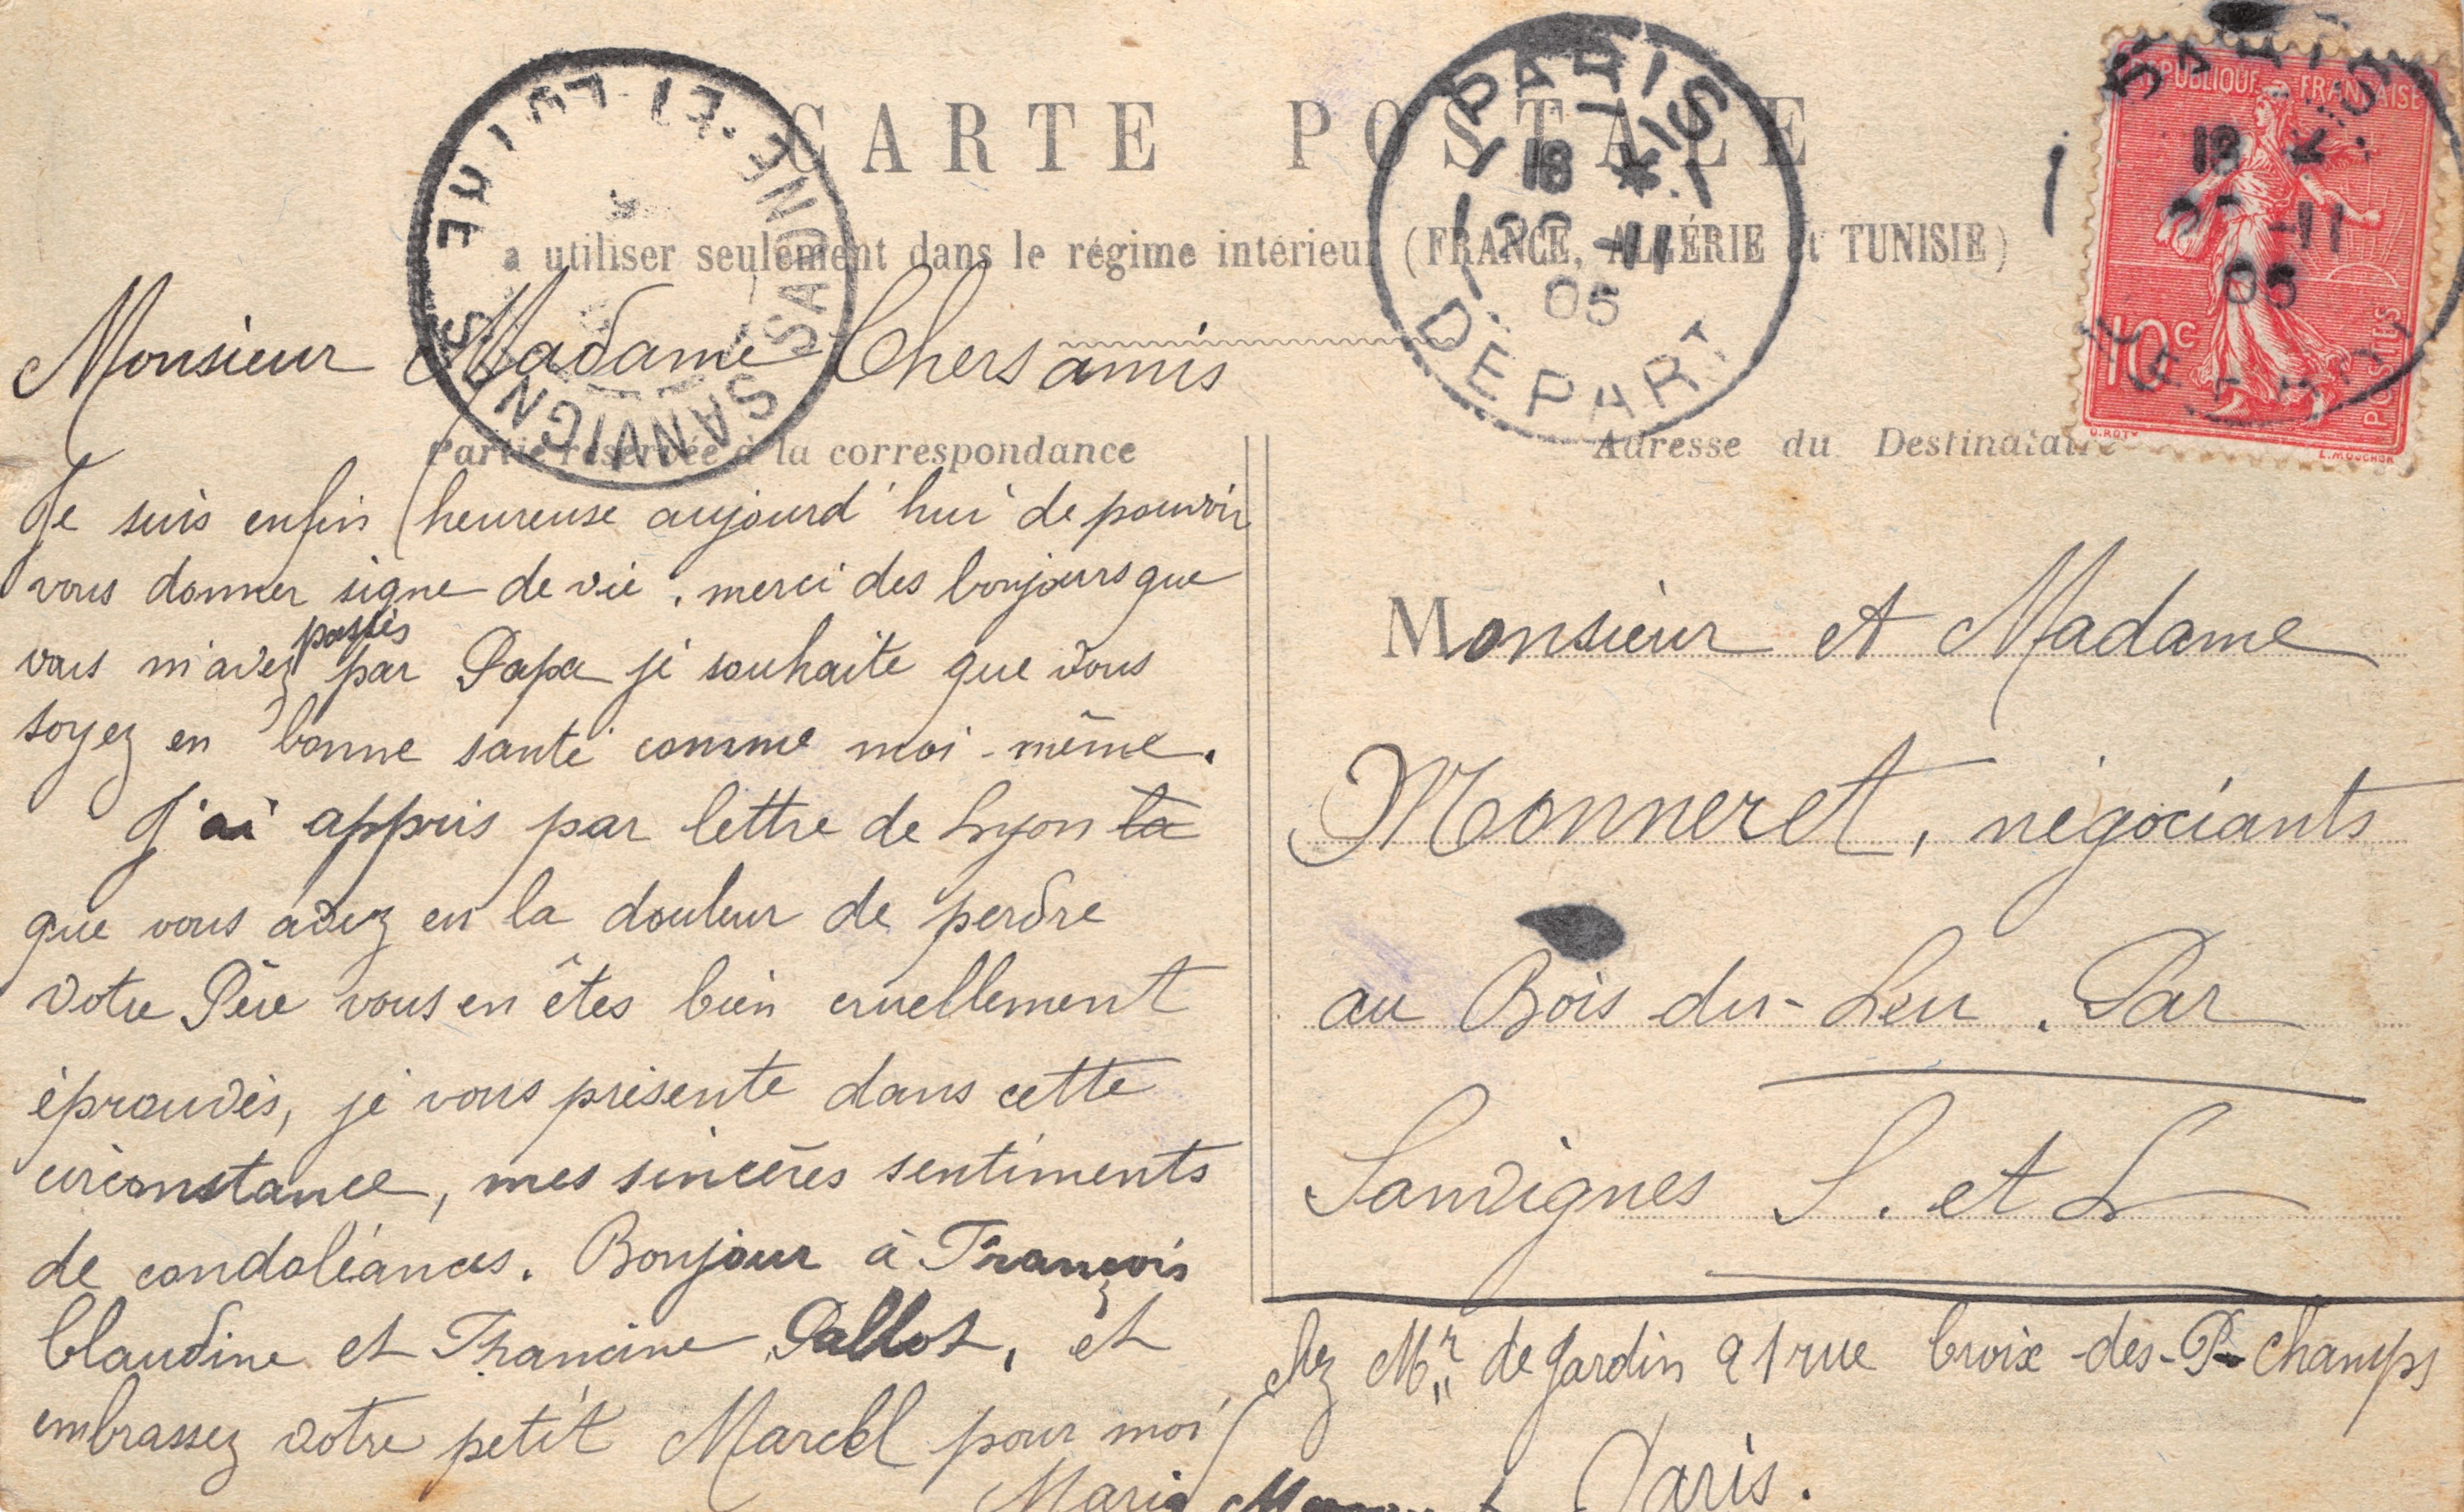 CARTE POSTALE
a utiliser seulement dans le régime intérieur (FRANCE, ALGÉRIE et TUNISIE)
SANVIGNES
SAÔNE-ET-LOIRE
PARIS
18 *
22 -11
05
DÉPART
RÉPUBLIQUE FRANÇAISE
18 *
-11
05
10c
POSTES
O. ROTY
L. MOUCHON
Partie réservée à la correspondance
Adresse du Destinataire
Monsieur Madame Chers amis
Je suis enfin heureuse aujourd'hui de pouvoir
vous donner signe de vie. merci des bonjours que
vous m'avez passés par Papa je souhaite que vous
soyez en bonne santé comme moi-même.
J'ai appris par lettre de Lyon la
que vous avez eu la douleur de perdre
votre Père vous en êtes bien cruellement
éprouvés, je vous présente dans cette
circonstance, mes sincères sentiments
de condoléances. Bonjour à François
Claudine et Francine Pallot, et
embrassez votre petit Marcel pour moi
Maria
Monsieur et Madame
Monneret, négociants
au Bois du-Leu. Par
Sanvignes S. et L
chez Mr de Jardin 21 rue Croix-des-Pts Champs
Paris.